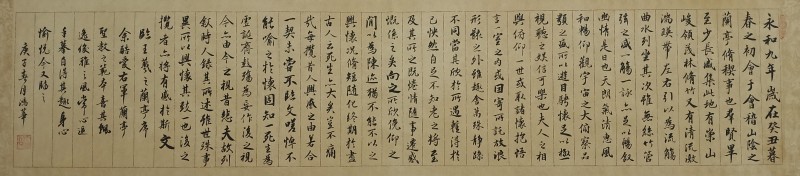 永和九年歲在癸丑暮
春之初會于會稽山陰之
蘭亭脩稧事也羣賢畢
至少長咸集此地有崇山
峻領茂林脩竹又有清流激
湍暎帶左右引以為流觴
曲水列坐其次雖無絲竹管
弦之盛一觴一詠亦足以暢敘
幽情是日也天朗氣清惠風
和暢仰觀宇宙之大俯察品
類之盛所以遊目騁懷足以極
視聽之娛信可樂也夫人之相
與俯仰一世或取諸懷抱悟
言一室之內或因寄所託放浪
形骸之外雖趣舍萬殊靜躁
不同當其欣於所遇蹔得於
己怏然自足不知老之將至
及其所之既惓情隨事遷感
慨係之矣向之所欣俛仰之
間以為陳迹猶不能不以之
興懷況脩短隨化終期於盡
古人云死生亦大矣豈不痛
哉每攬昔人興感之由若合
一契未嘗不臨文嗟悼不
能喻之於懷固知一死生為
虛誕齊彭殤為妄作後之視
今亦由今之視昔悲夫故列
敘時人錄其所述雖世殊事
異所以興懷其致一也後之
攬者亦將有感於斯文
臨王羲之蘭亭序
余酷愛右軍蘭亭
聖教之範本喜其飄
逸俊雅之風常心追
手摹自得其趣身心
愉悅今又臨之